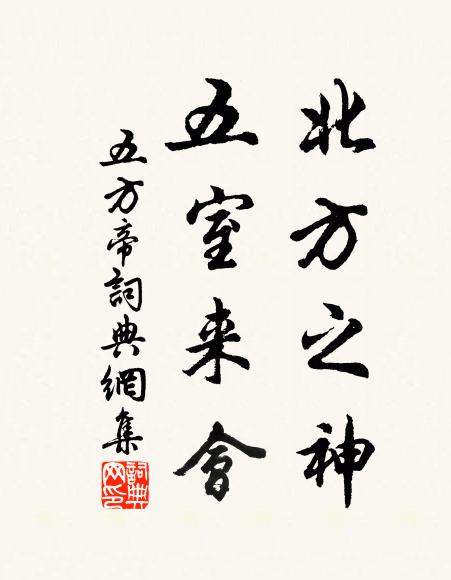 北方之神
五室来會
五方帝詞典網集
詞典网印